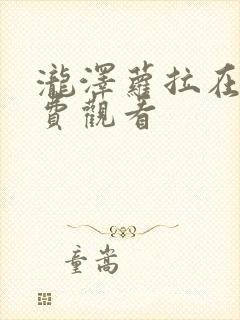 瀧澤蘿拉在
費觀看
童嵩